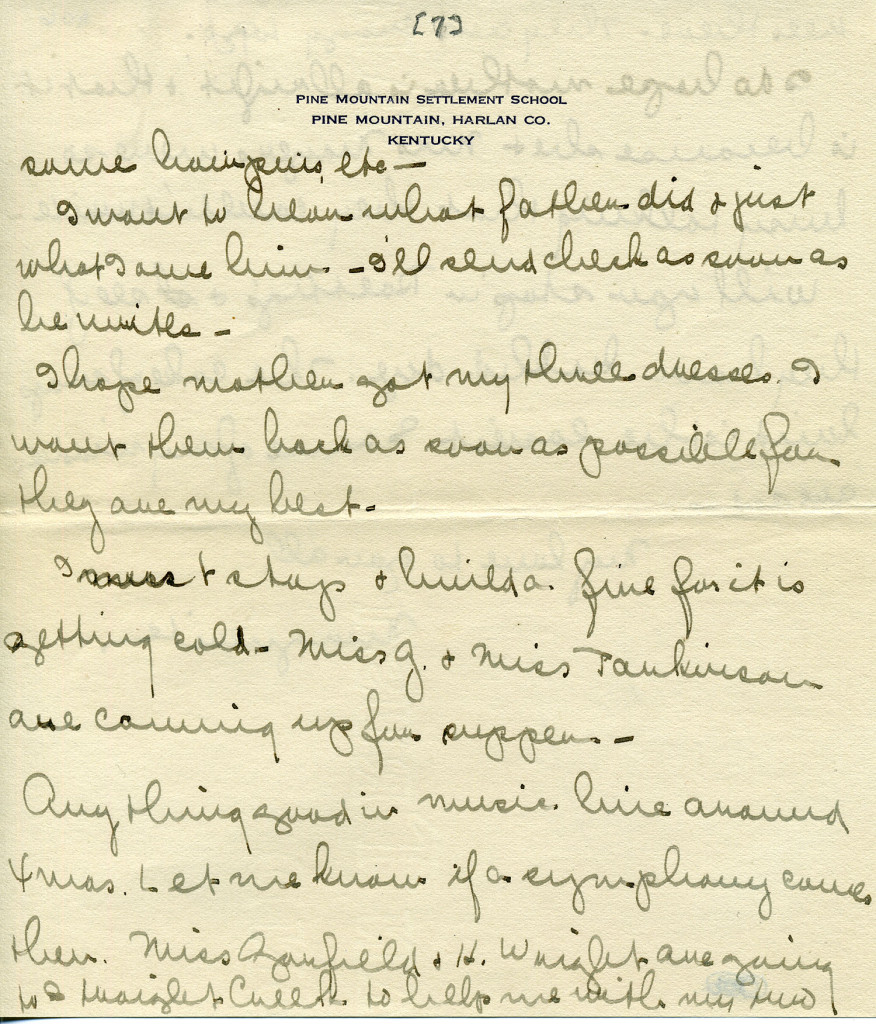 [7]
PINE MOUNTAIN SETTLEMENT SCHOOL
PINE MOUNTAIN, HARLAN CO.
KENTUCKY
some hairpins, etc —
I want to hear what father did & just
what I owe him. - I'll send check as soon as
he writes -
I hope mother got my three dresses. I
want them back as soon as possible for
they are my best -
I must stop & build a fire for it is
getting cold - Miss G. & Miss
are coming up for supper. -
Any thing good in music line around
Xmas. Let me know if a symphony comes
then. Miss Garfield & H. Wright are going
to Straight Creek to help me with my two